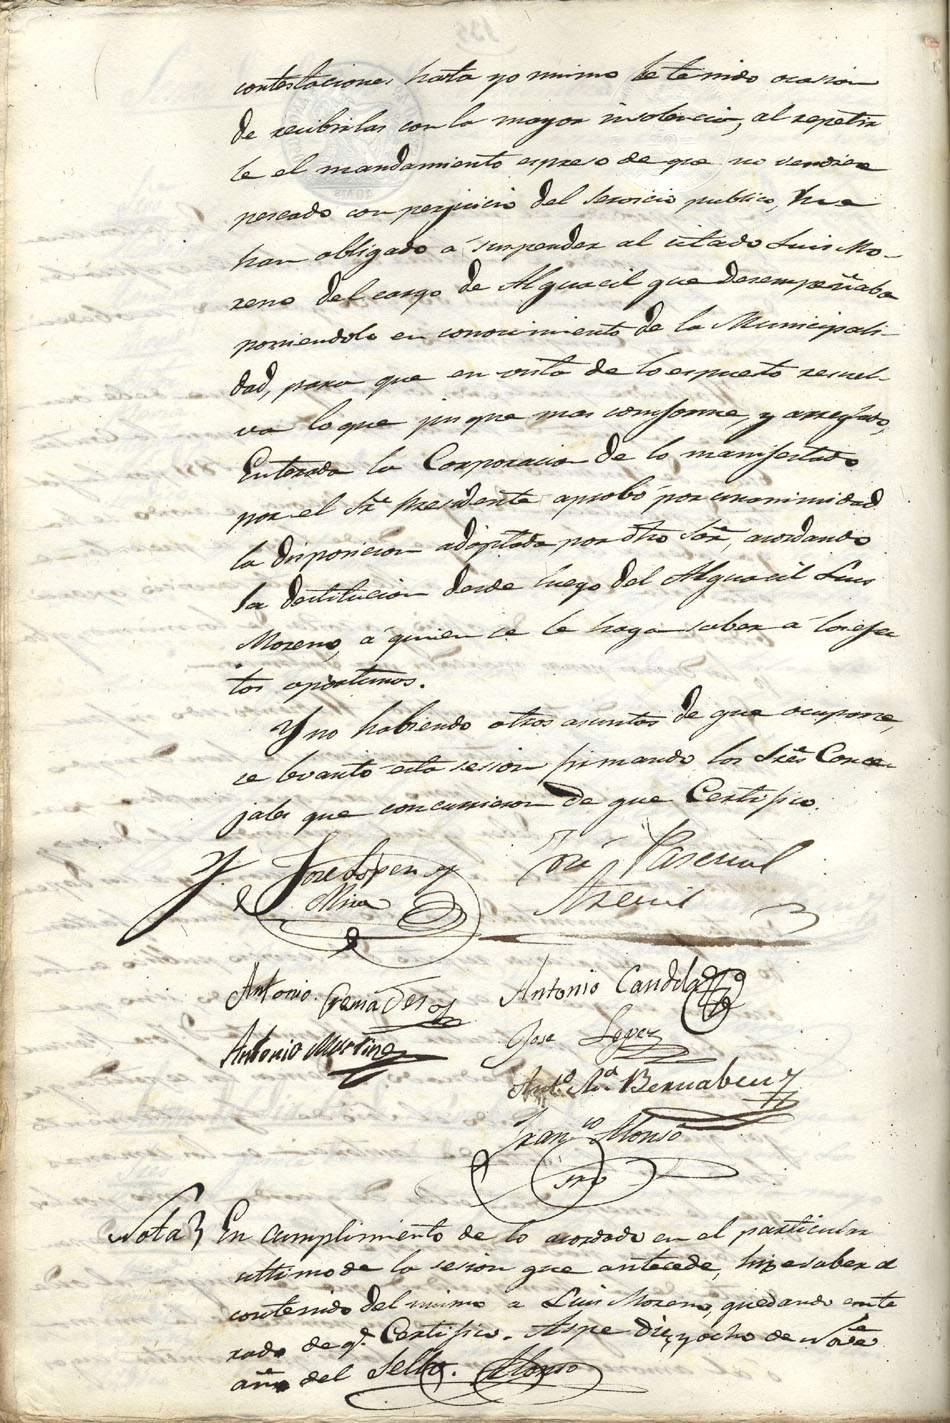 contestaciones, hasta yo mismo he tenido ocasion
de recibirlas con la mayor insolencia, al repetir
le el mandamiento espreso de que no vendiera
pescado con perjuicio del servicio publico, me
han obligado á suspender al citado Luis Mo-
reno del cargo de Alguacil que desempeñaba
poniendolo en conocimiento de la Municipali-
dad, para que en vista de lo espuesto resuel-
va lo que jusgue mas conforme, y arreglado,
Enterada la Corporacion de lo manifestado
por el Sr. Presidente aprobó por unanimidad
la disposicion adoptada por dho Sor., acordando
la destitucion desde luego del Alguacil Luis
Moreno, á quien se le haga saber a los efec
tos oportunos.
Y no habiendo otros asuntos de que ocuparse,
se levantó esta sesion firmando los Sres Conce-
jales que concurrieron de que Certifico.
Jose Lopez y
Mira
José Pascual
Antonio Cremades
Antonio Candela
Antonio Martinez
Jose Lopez
Anto. Ma. Bernabeu
Franco Alonso
Srio
Nota En cumplimiento de lo acordado en el particular
ultimo de la sesion que antecede, hize saber el
contenido del mismo a Luis Moreno, quedando ente
rado de q. Certifico. Aspe diez y ocho de Nove
año del Sello. Alonso